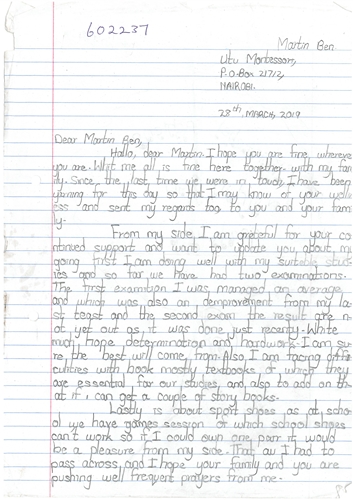 602237
Martin Ben
Utu Montessori,
P.O.Box 21712,
NAIROBI.
28th, MARCH, 2019
Dear Martin Ben,
Hallo, dear Martin. I hope you are fine wherever
you are. With me all is fine here together with my fam
ily. Since, the last, time we were in touch, I have been
yearning for this day so that I may know of your welln
ess and sent my regards too to you and your fami
ly.
From my side, I am grateful for your co
ntinued support and want to update you about, my
going first I am doing well with my suitable stud
ies and so far we have had two examinations.
The first examition I was managed an average
and which was also an demprovement from my la
st teast and the second exam the result are n
ot yet out as it was done just recently. White
much hope determination and hardwork. I am su
re, the best will come, from. Also, I am facing diffi
culties with book mostly textbooks of which they
are essential for our studies, and also to add on th
at if, I can get a couple of story books.
Lastly is about sport shoes as at, scho
ol we have games session of which school shoes
can't work so if I could own one pair it, would
be a pleasure from my side. That au I had to
pass across, and I hope your family and you are
pushing well frequent prayers from me.